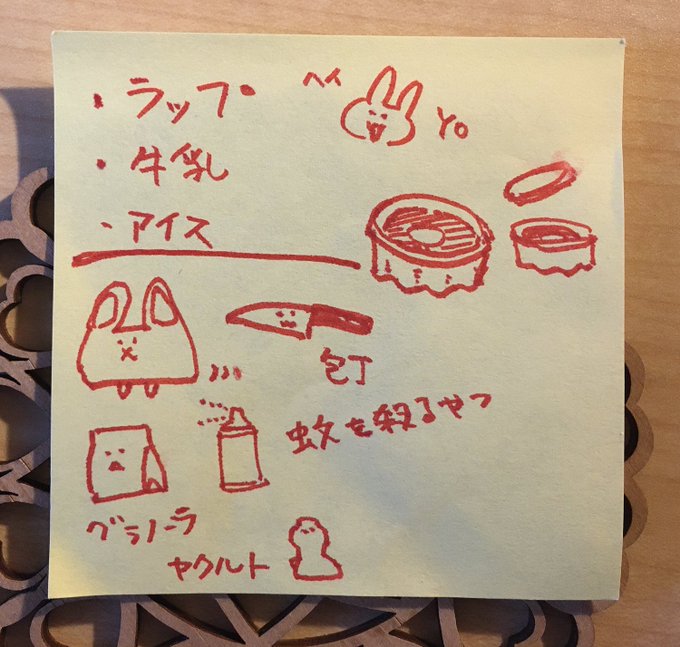 ・ラップ
ヘイ
YO
・牛乳
・アイス
包丁
蚊を殺るやつ
グラノーラ
ヤクルト